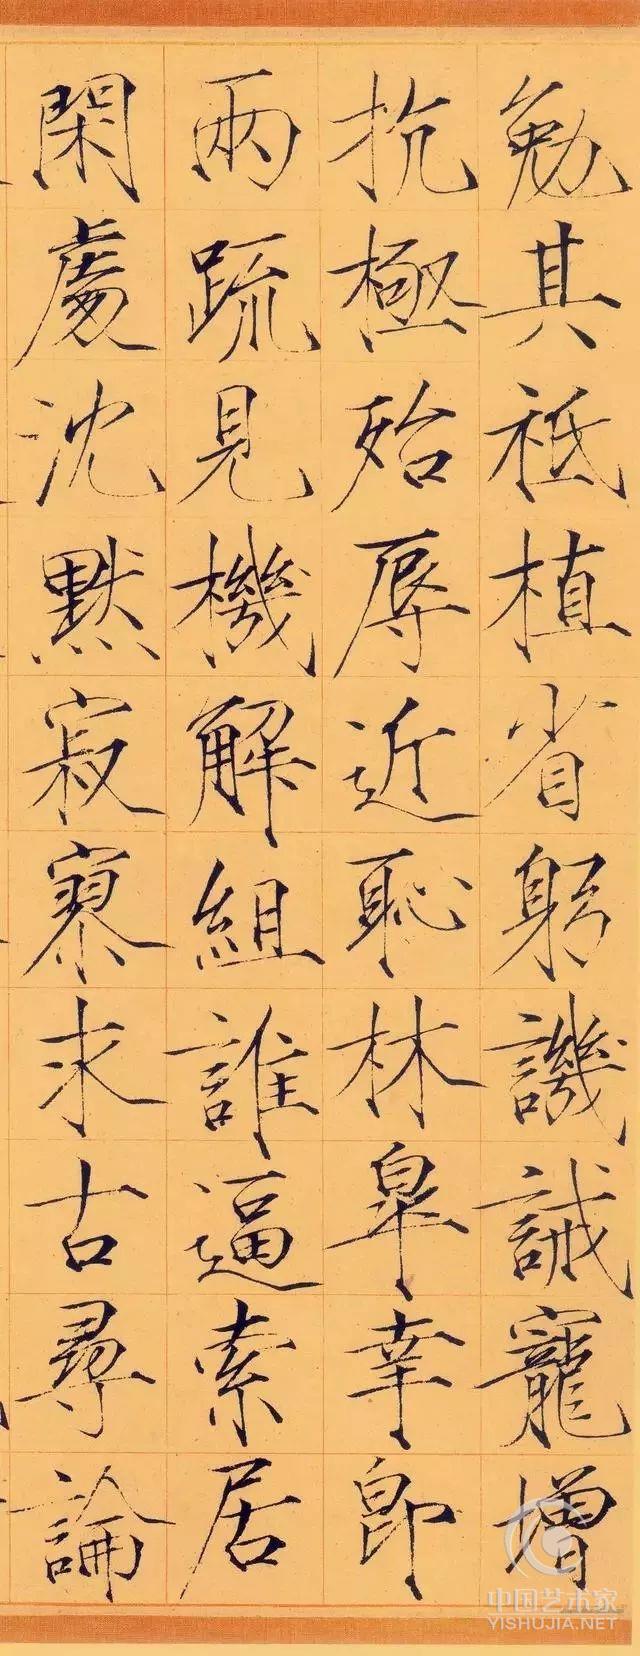 勉其祗植省躬譏誡寵增
抗極殆辱近恥林皐幸即
兩疏見機解組誰逼索居
閑處沈默寂寥求古尋論
中国艺术家
YISHUJIA.NET